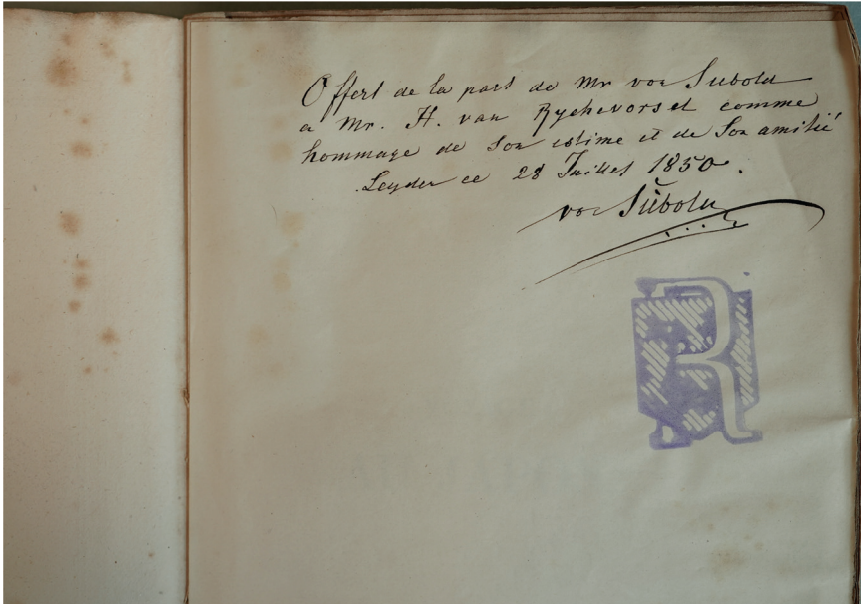 Offert de la part de Mr von Siebold
a Mr. H. van Ryckevorsel comme
hommage de son estime et de son amitié
Leyden ce 28 Juillet 1850.
von Siebold
R